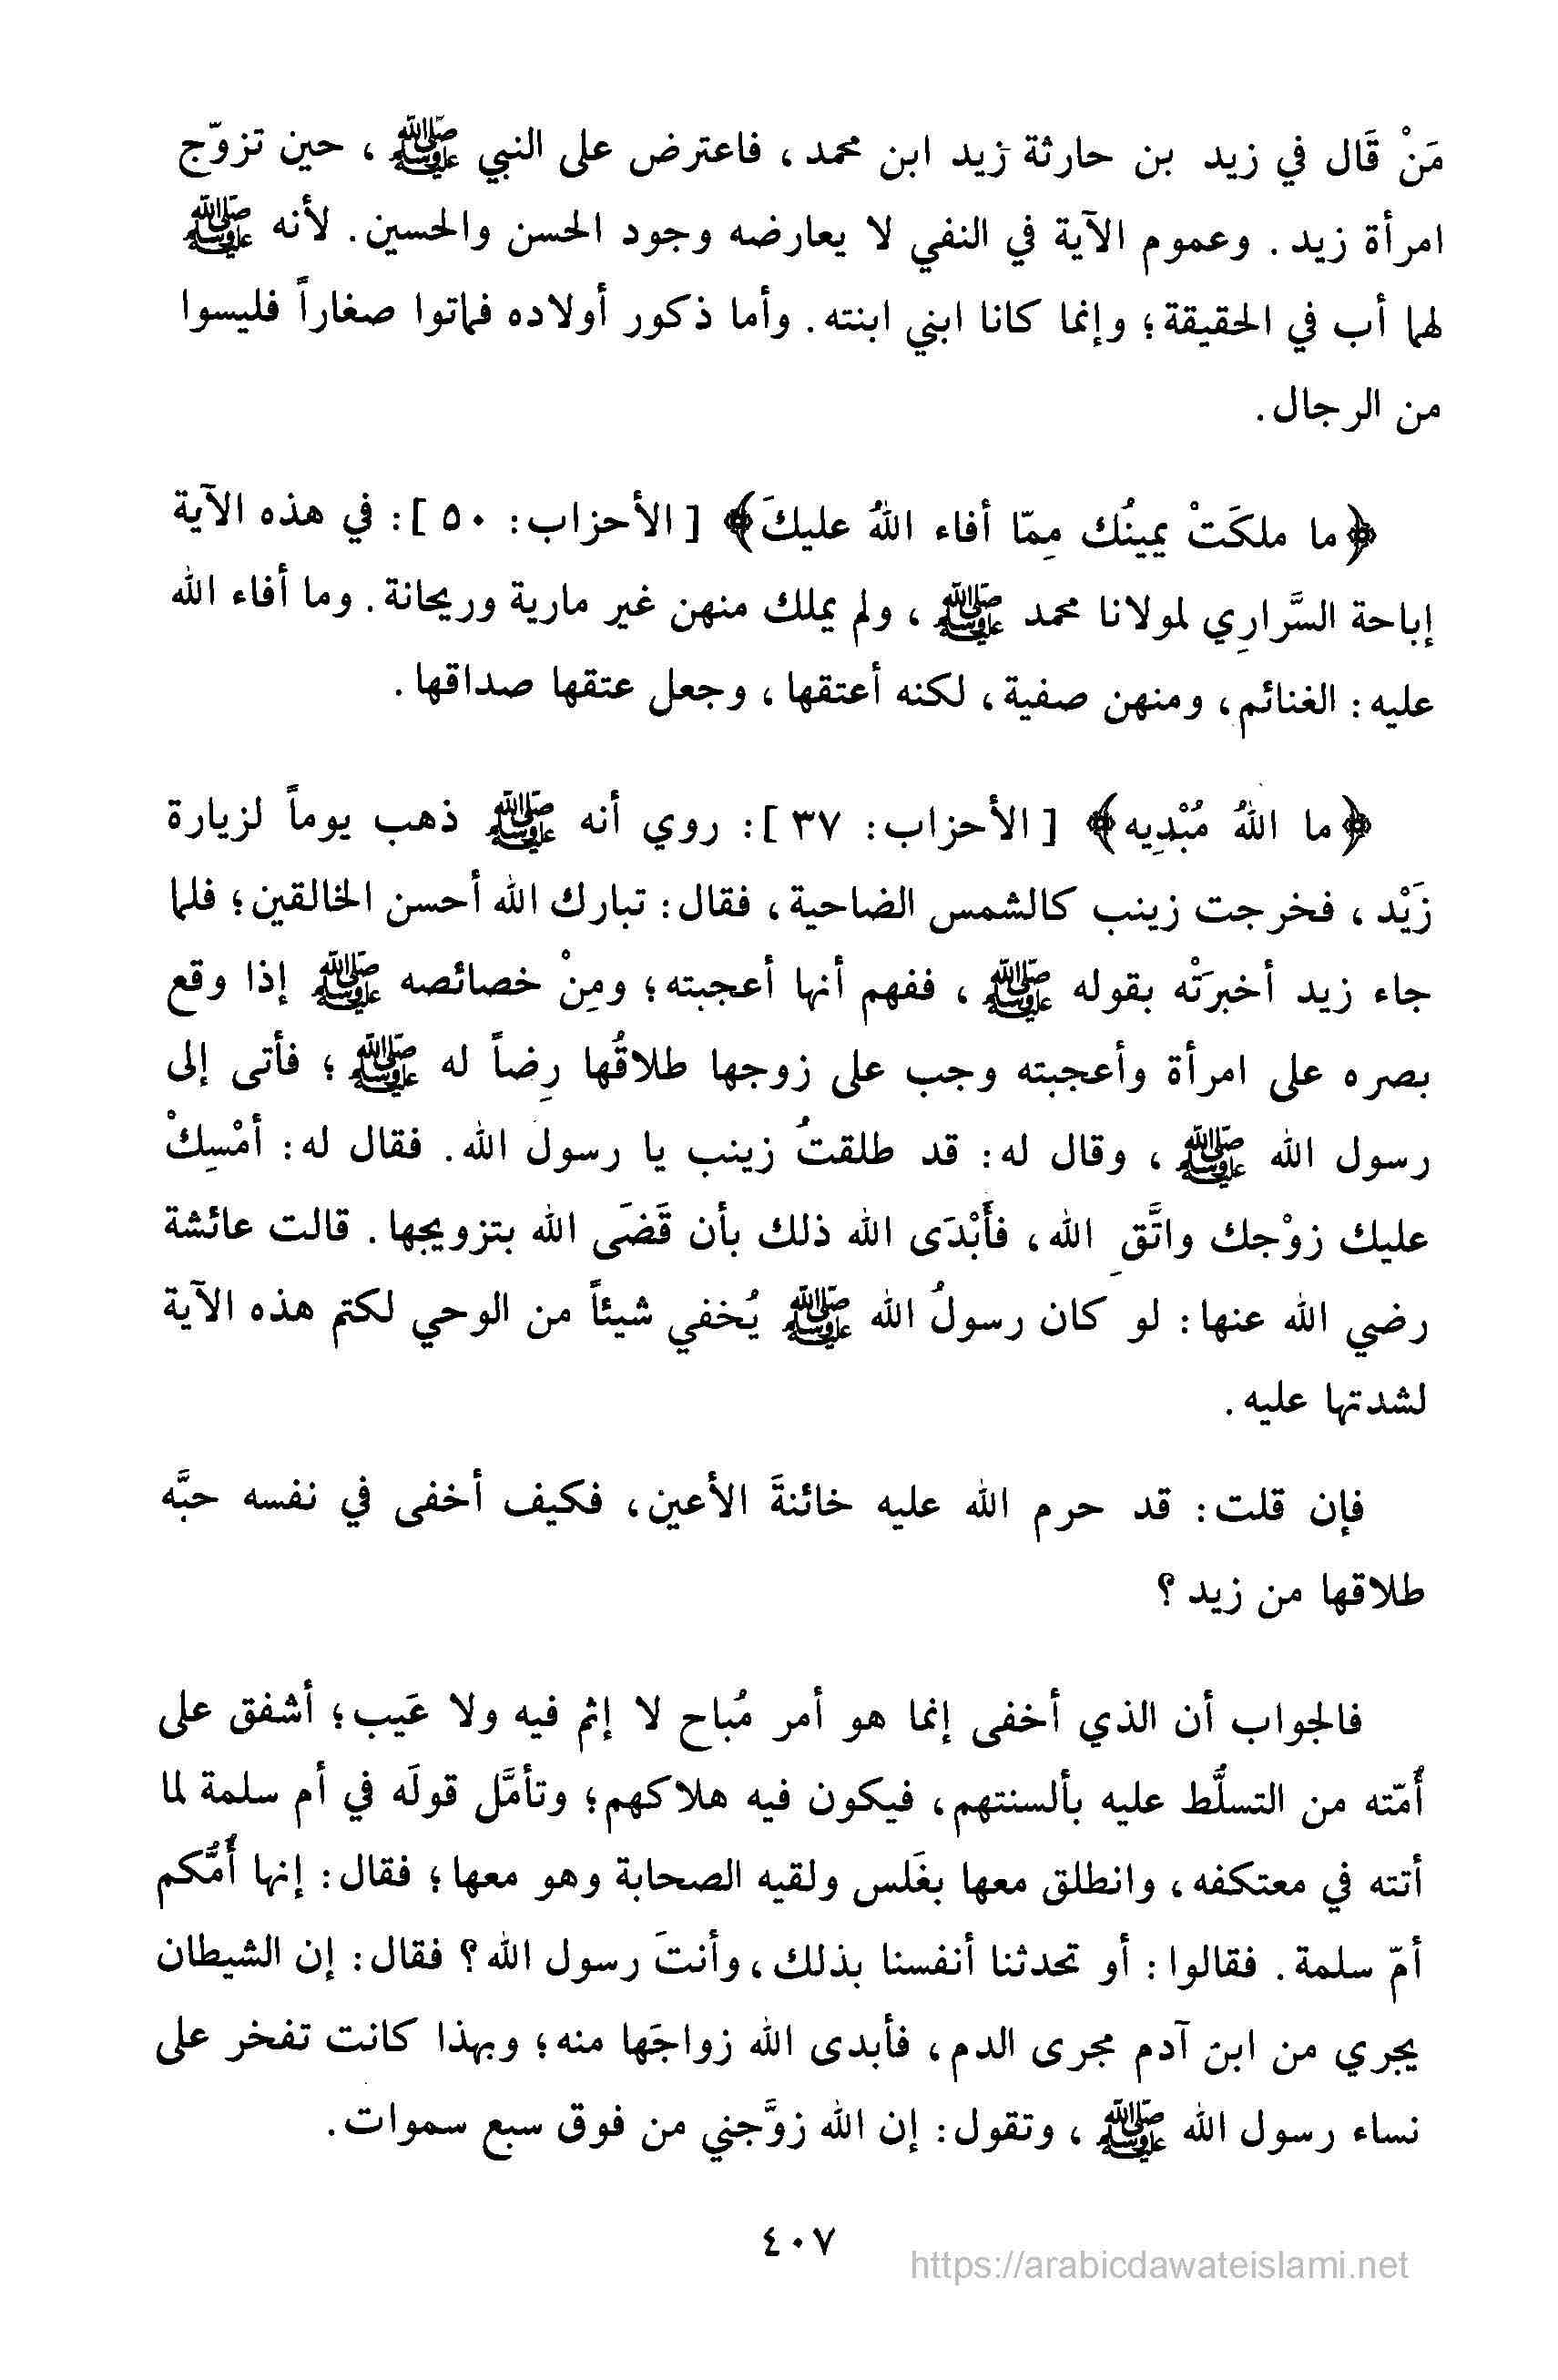 مَنْ قَال في زيد بن حارثة زيد ابن محمد، فاعترض على النبي ﷺ، حين تزوّج
امرأة زيد. وعموم الآية في النفي لا يعارضه وجود الحسن والحسين. لأنه ﷺ
لهما أب في الحقيقة؛ وإنما كانا ابني ابنته. وأما ذكور أولاده فماتوا صغاراً فليسوا
من الرجال.
﴿ما ملكَتْ يمينُك مِمّا أفاء اللهُ عليكَ﴾ [الأحزاب: ٥٠]: في هذه الآية
إباحة السَّرارِي لمولانا محمد ﷺ، ولم يملك منهن غير مارية وريحانة. وما أفاء الله
عليه: الغنائم، ومنهن صفية، لكنه أعتقها، وجعل عتقها صداقها.
﴿ما اللهُ مُبْدِيه﴾ [الأحزاب: ٣٧]: روي أنه ﷺ ذهب يوماً لزيارة
زَيْد، فخرجت زينب كالشمس الضاحية، فقال: تبارك الله أحسن الخالقين؛ فلما
جاء زيد أخبرَتْه بقوله ﷺ، ففهم أنها أعجبته؛ ومِنْ خصائصه ﷺ إذا وقع
بصره على امرأة وأعجبته وجب على زوجها طلاقُها رِضاً له ﷺ؛ فأتى إلى
رسول الله ﷺ، وقال له: قد طلقتُ زينب يا رسولَ الله. فقال له: أمْسِكْ
عليك زوْجك واتَّقِ الله، فأَبْدَى الله ذلك بأن قَضَى الله بتزويجها. قالت عائشة
رضي الله عنها: لو كان رسولُ الله ﷺ يُخفي شيئاً من الوحي لكتم هذه الآية
لشدتها عليه.
فإن قلت: قد حرم الله عليه خائنةَ الأعين، فكيف أخفى في نفسه حبَّه
طلاقها من زيد؟
فالجواب أن الذي أخفى إنما هو أمر مُباح لا إثم فيه ولا عَيب؛ أشفق على
أُمّته من التسلُّط عليه بألسنتهم، فيكون فيه هلاكهم؛ وتأمَّل قولَه في أم سلمة لما
أتته في معتكفه، وانطلق معها بغَلس ولقيه الصحابة وهو معها؛ فقال: إنها أُمُّكم
أمّ سلمة. فقالوا: أو تحدثنا أنفسنا بذلك، وأنتَ رسول الله؟ فقال: إن الشيطان
يجري من ابن آدم مجرى الدم، فأبدى الله زواجَها منه؛ وبهذا كانت تفخر على
نساء رسول الله ﷺ، وتقول: إن الله زوَّجني من فوق سبع سموات.
٤٠٧
https://arabicdawateislami.net